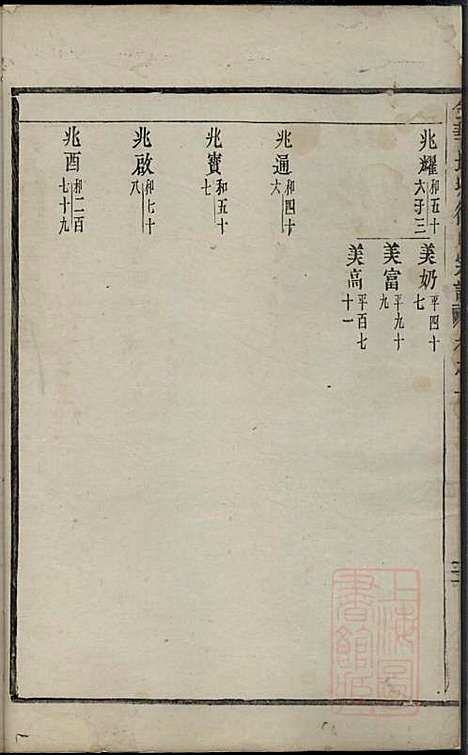 兆耀 和五十六子三
美奶 平四十七
美富 平九十九
美高 平百七十一
兆通 和四十六
兆寳 和五十七
兆啟 和七十八
兆酉 和二百七十九
上海圖書館藏